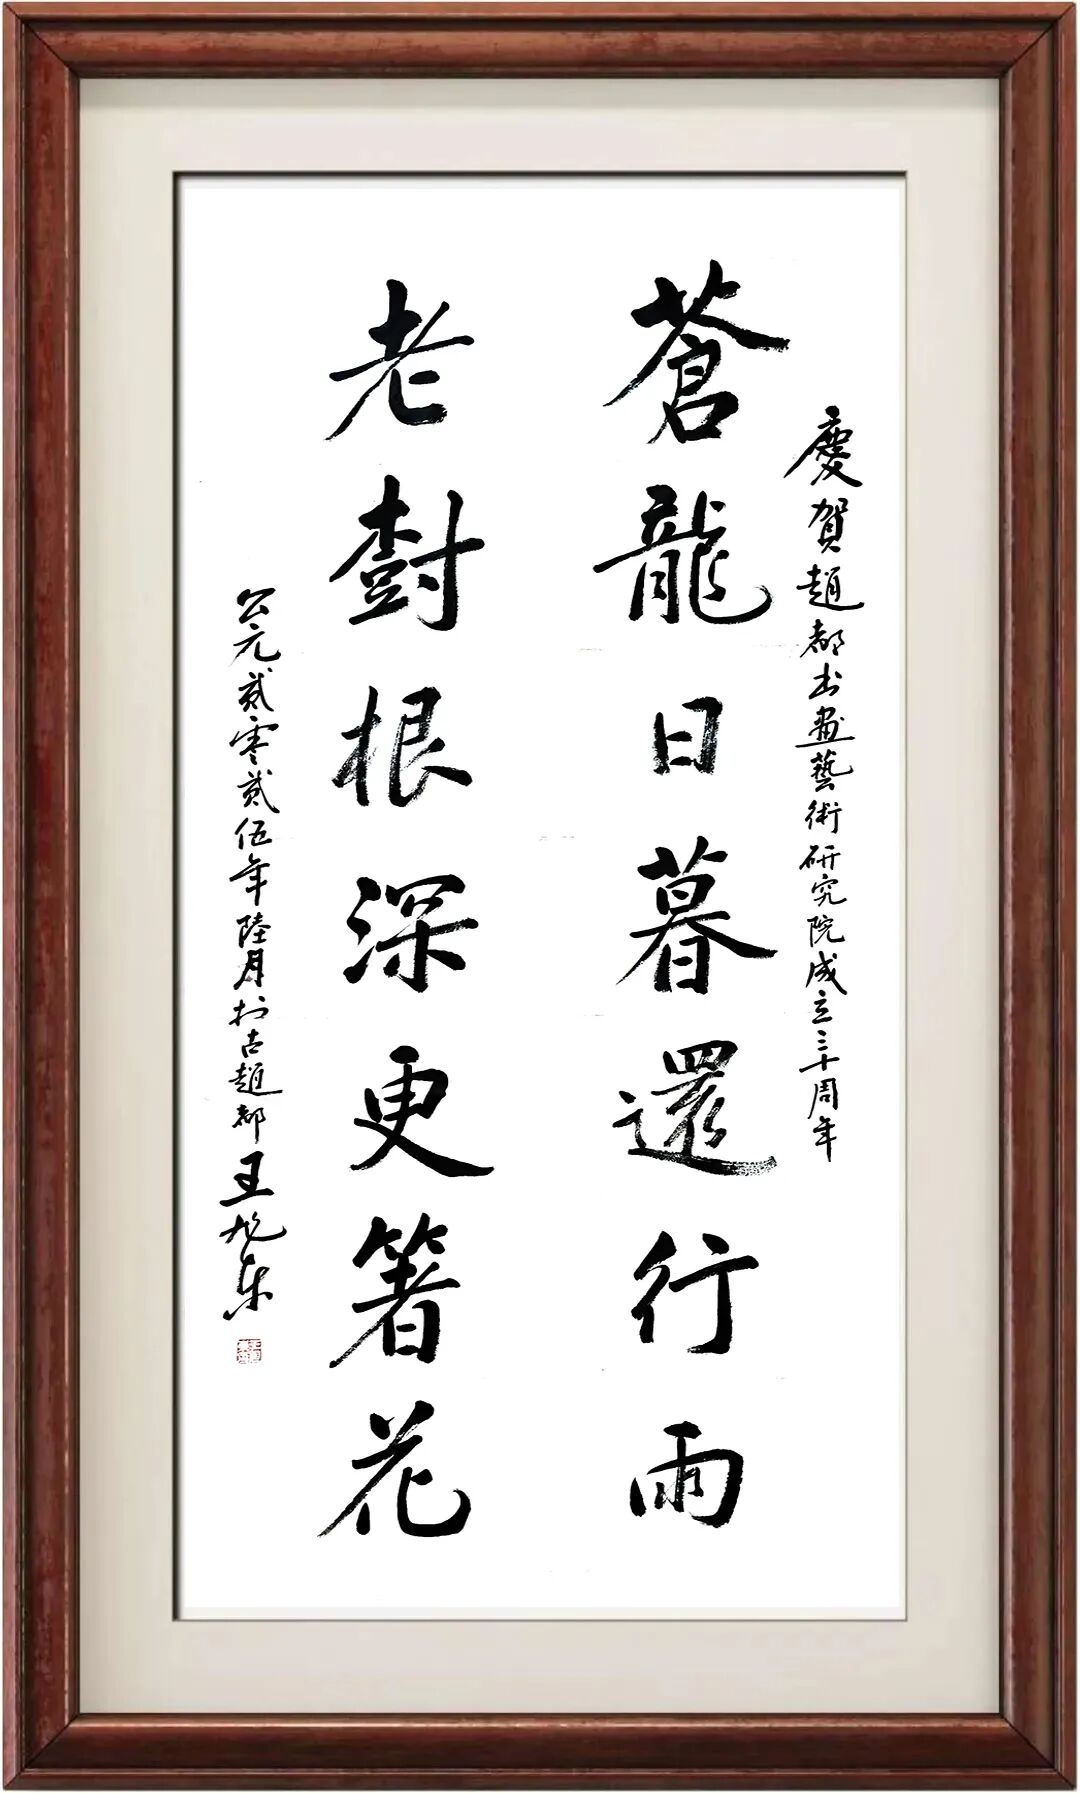 慶賀趙都书畫藝術研究院成立三十周年
蒼龍日暮還行雨
老樹根深更箸花
公元贰零贰伍年陸月於古趙都王旭东